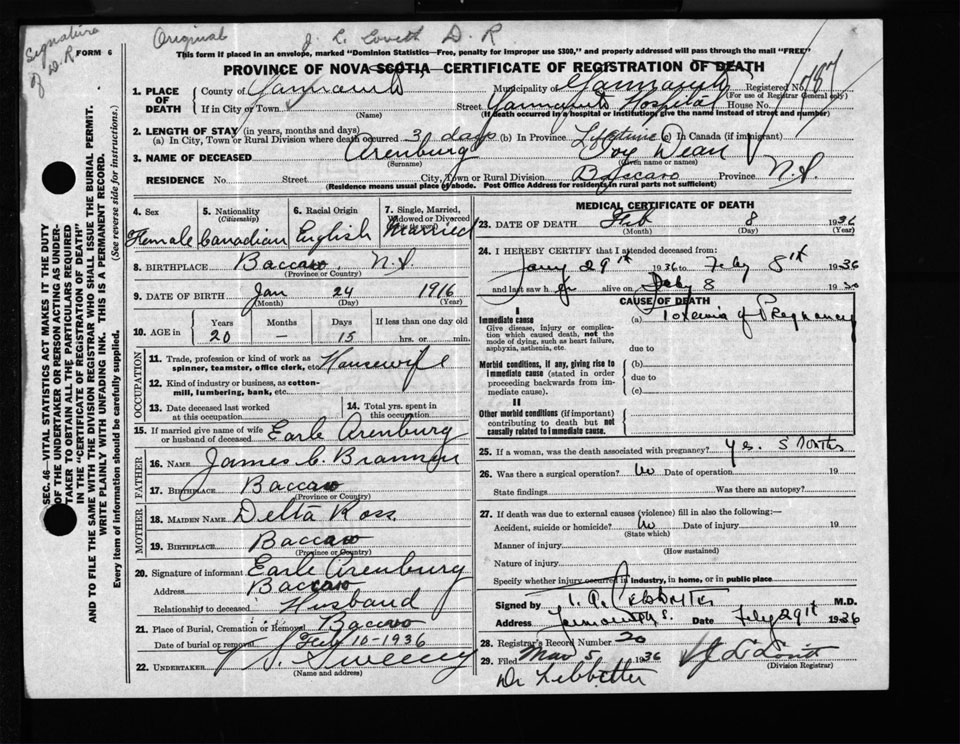 Signature of D.R
Original J. L. Lovett D. R
FORM 6
This form if placed in an envelope, marked "Dominion Statistics—Free, penalty for improper use $300," and properly addressed will pass through the mail "FREE"
PROVINCE OF NOVA SCOTIA—CERTIFICATE OF REGISTRATION OF DEATH
1. PLACE OF DEATH
County of Yarmouth Municipality of Yarmouth Registered No.
(For use of Registrar General only)
If in City or Town (Name) Street Yarmouth Hospital House No.
(If death occurred in a hospital or institution, give the name instead of street and number)
2. LENGTH OF STAY (in years, months and days)
(a) In City, Town or Rural Division where death occurred 3 days (b) In Province Lifetime (c) In Canada (if immigrant)
3. NAME OF DECEASED Arenburg Joy Dean
(Surname) (Given name or names)
RESIDENCE No. Street City, Town or Rural Division Baccaro Province N.S.
(Residence means usual place of abode. Post Office Address for residents in rural parts not sufficient)
4. Sex Female
5. Nationality (Citizenship) Canadian
6. Racial Origin English
7. Single, Married, Widowed or Divorced Married
8. BIRTHPLACE Baccaro, N.S.
(Province or Country)
9. DATE OF BIRTH Jan 24 1916
(Month) (Day) (Year)
10. AGE in Years Months Days If less than one day old
20 — 15 hrs. or min.
OCCUPATION
11. Trade, profession or kind of work as spinner, teamster, office clerk, etc. Housewife
12. Kind of industry or business, as cotton-mill, lumbering, bank, etc.
13. Date deceased last worked at this occupation
14. Total yrs. spent in this occupation
15. If married give name of wife or husband of deceased Earle Arenburg
FATHER
16. NAME James C. Brannen
17. BIRTHPLACE Baccaro
(Province or Country)
MOTHER
18. MAIDEN NAME Delta Ross
19. BIRTHPLACE Baccaro
(Province or Country)
20. Signature of informant Earle Arenburg
Address Baccaro
Relationship to deceased Husband
21. Place of Burial, Cremation or Removal Baccaro
Date of burial or removal Feby 10-1936
22. UNDERTAKER Sweeny
(Name and address)
MEDICAL CERTIFICATE OF DEATH
23. DATE OF DEATH Feb 8 1936
(Month) (Day) (Year)
24. I HEREBY CERTIFY that I attended deceased from:
Jany 29th 1936 to Feby 8th 1936
and last saw her alive on Feby 8 1936
CAUSE OF DEATH
I
Immediate cause (a) Toxemia of Pregnancy
Give disease, injury or complication which caused death, not the mode of dying, such as heart failure, asphyxia, asthenia, etc.
due to
Morbid conditions, if any, giving rise to immediate cause (stated in order proceeding backwards from immediate cause).
(b)
due to
(c)
II
Other morbid conditions (if important) contributing to death but not causally related to immediate cause.
25. If a woman, was the death associated with pregnancy? Yes.
26. Was there a surgical operation? No Date of operation 19
State findings Was there an autopsy?
27. If death was due to external causes (violence) fill in also the following:—
Accident, suicide or homicide? No Date of injury 19
(State which)
Manner of injury
(How sustained)
Nature of injury
Specify whether injury occurred in industry, in home, or in public place
Signed by M.D.
Address Yarmouth N.S. Date Feby 29th 1936
28. Registrar's Record Number 20
29. Filed Mar 5 1936 J L Lovitt
(Division Registrar)
Dr Lebbetter
SEC. 46—VITAL STATISTICS ACT MAKES IT THE DUTY OF THE UNDERTAKER OR PERSON ACTING AS UNDERTAKER TO OBTAIN ALL THE PARTICULARS REQUIRED IN THE "CERTIFICATE OF REGISTRATION OF DEATH" AND TO FILE THE SAME WITH THE DIVISION REGISTRAR WHO SHALL ISSUE THE BURIAL PERMIT.
WRITE PLAINLY WITH UNFADING INK. THIS IS A PERMANENT RECORD.
Every item of information should be carefully supplied. (See reverse side for instructions.)